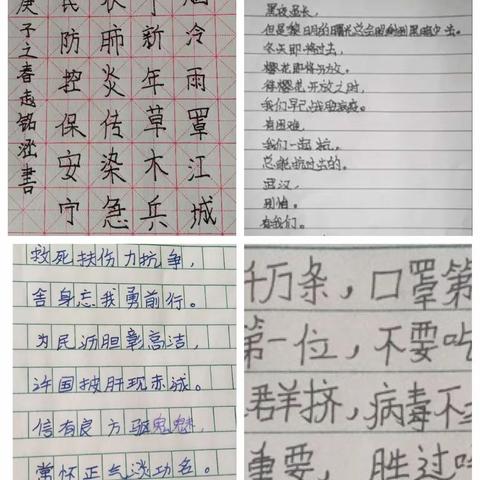 冷雨罩江城
新年草木兵
肺炎传染急
民防控保安宁
庚子之春
黑夜虽长，
但是黎明的曙光总会照射到黑暗中去。
冬天即将过去，
樱花即将开放。
待樱花开放之时，
我们早已战胜病疫。
有困难，
我们一起抗。
总能抗过去的。
武汉，
别怕。
有我们。
救死扶伤力抗争，
舍身忘我勇前行。
为民沥胆彰高洁，
许国披肝现赤诚。
信有良方驱鬼魅，
常怀正气淡功名。
千万条，口罩第
第一位，不要吃
群挤，病毒不
重要，胜过